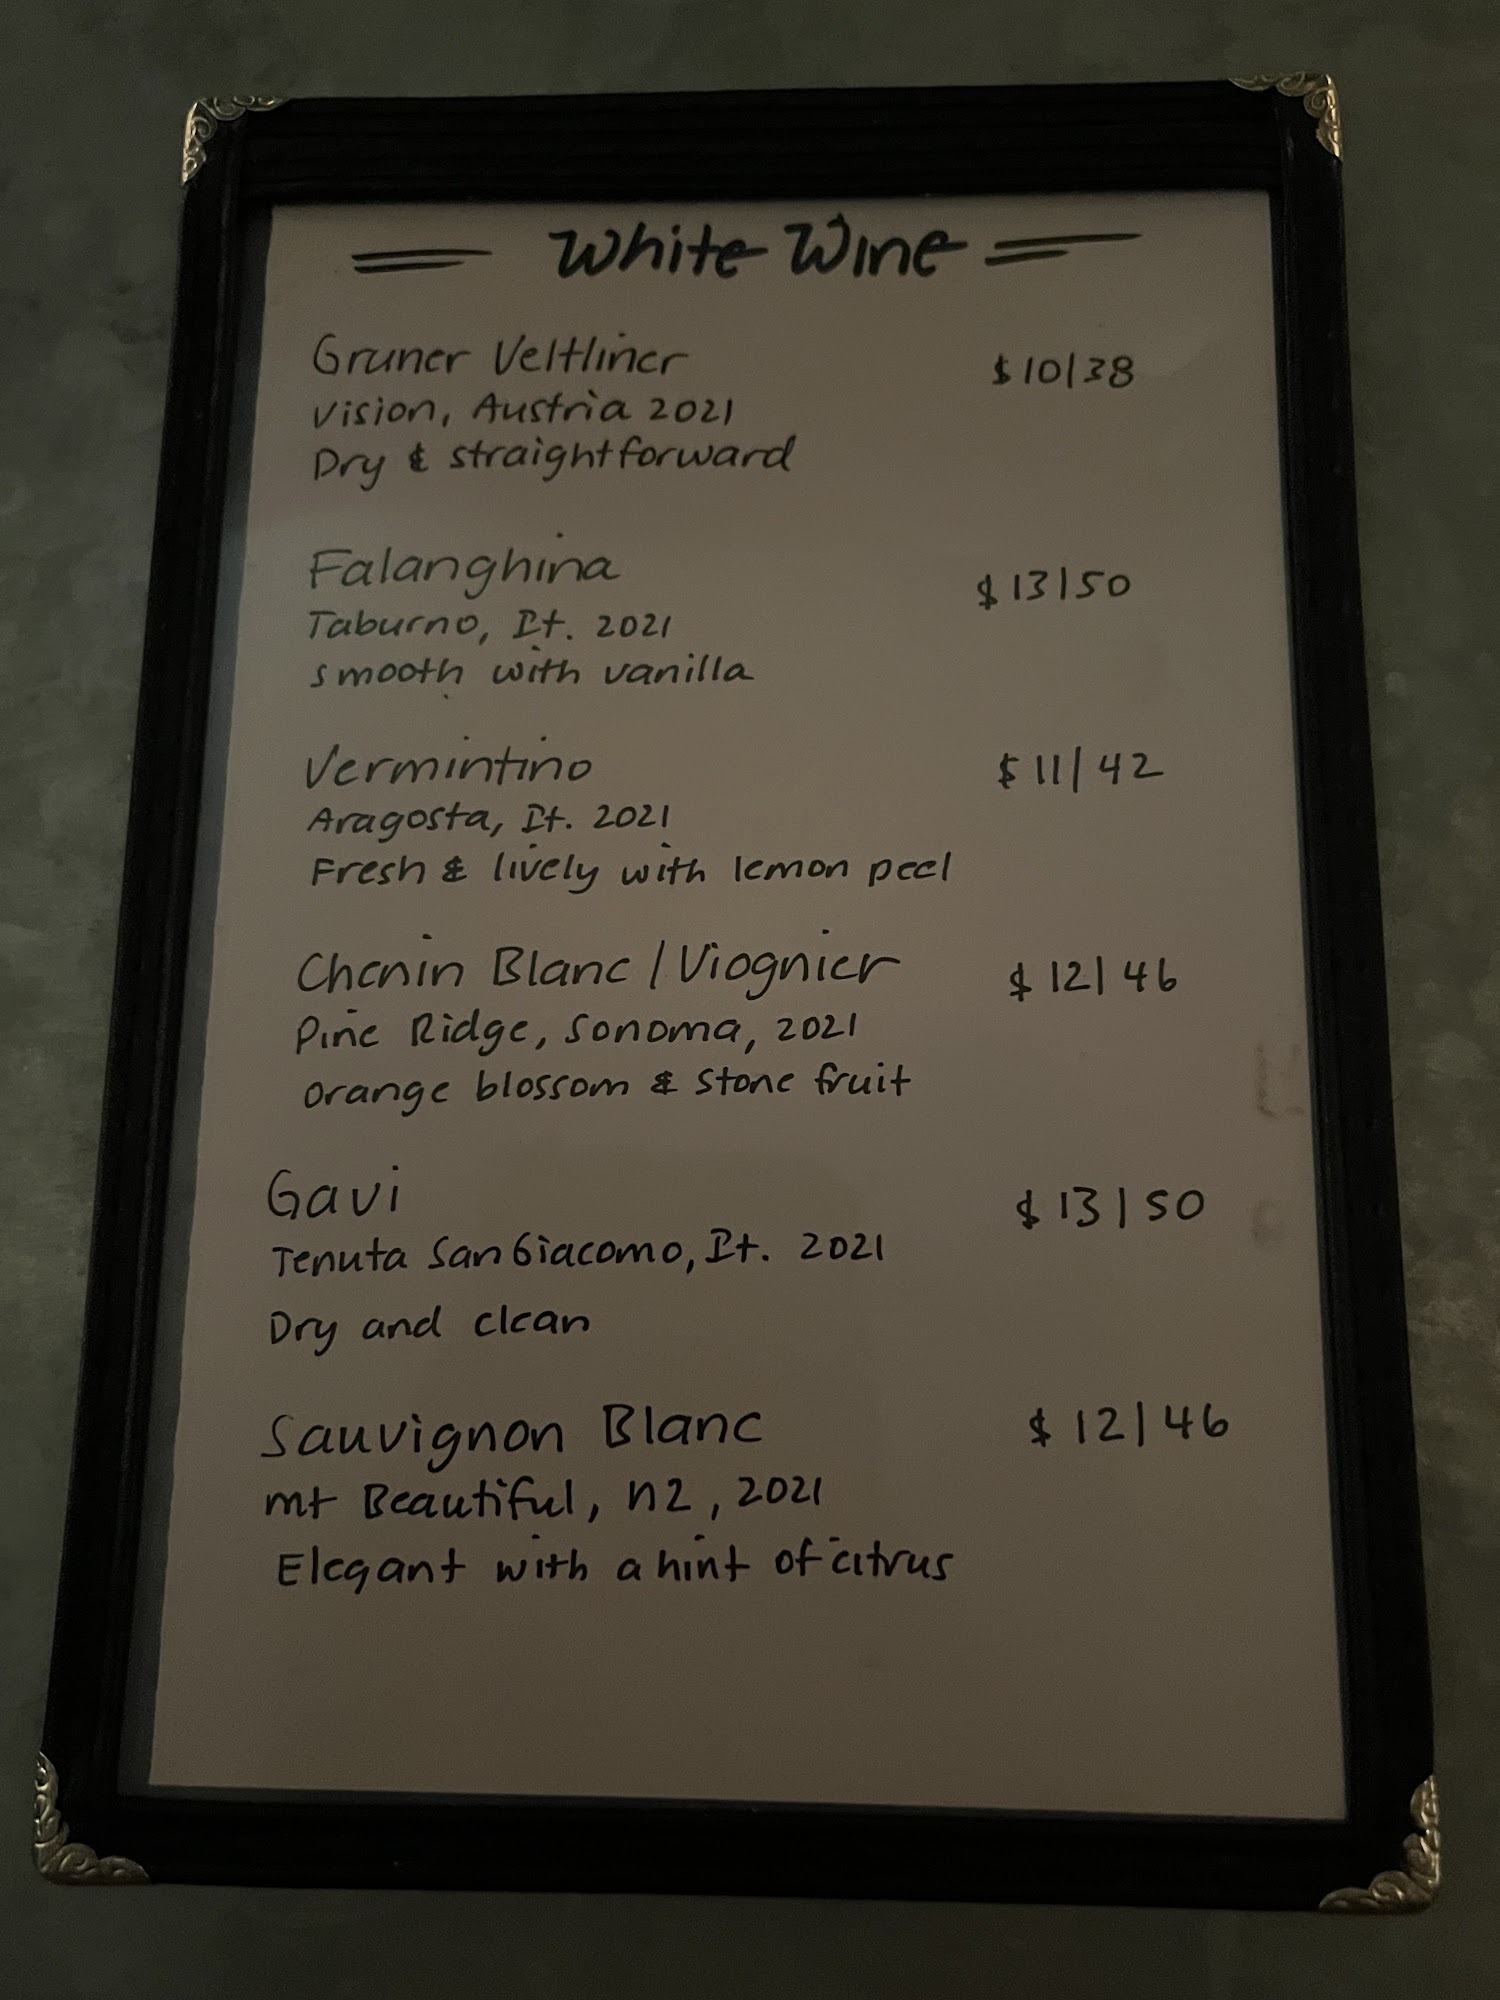 White Wine
Gruner Veltliner $10/38
Vision, Austria 2021
Dry & straightforward
Falanghina $13/50
Taburno, It. 2021
smooth with vanilla
Vermintino $11/42
Aragosta, It. 2021
Fresh & lively with lemon peel
Chenin Blanc / Viognier $12/46
Pine Ridge, Sonoma, 2021
orange blossom & stone fruit
Gavi $13/50
Tenuta San Giacomo, It. 2021
Dry and clean
Sauvignon Blanc $12/46
mt Beautiful, nz, 2021
Elegant with a hint of citrus